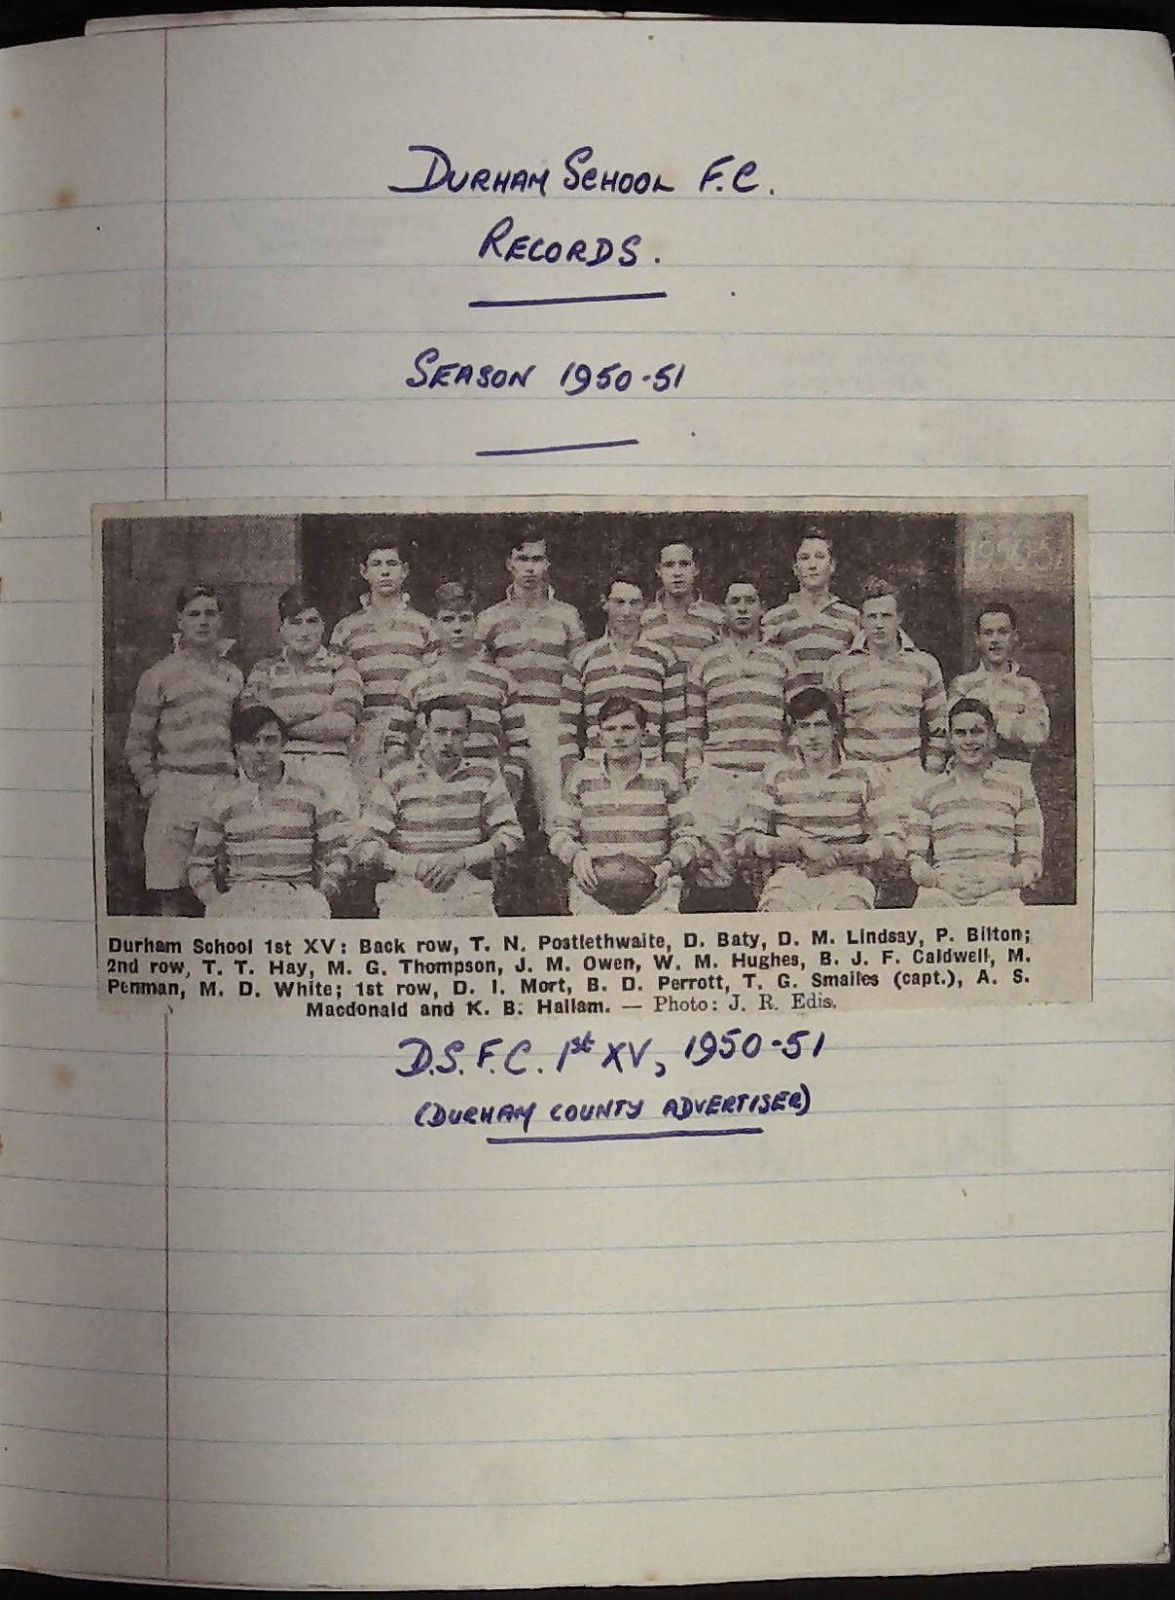 DURHAM SCHOOL F.C.
RECORDS.
SEASON 1950-51
1950-51
Durham School 1st XV: Back row, T. N. Postlethwaite, D. Baty, D. M. Lindsay, P. Bilton;
2nd row, T. T. Hay, M. G. Thompson, J. M. Owen, W. M. Hughes, B. J. F. Caldwell, M.
Penman, M. D. White; 1st row, D. I. Mort, B. D. Perrott, T. G. Smailes (capt.), A. S.
Macdonald and K. B. Hallam. — Photo: J. R. Edis.
D.S.F.C. 1st XV, 1950-51
(DURHAM COUNTY ADVERTISER)